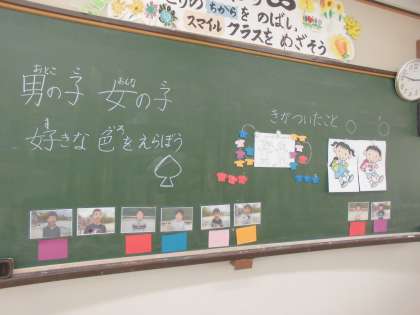 ちからをのばし、
スマイルクラスをめざそう
おとこ おんな
男の子 女の子
す いろ
好きな色をえらぼう
きがついたこと